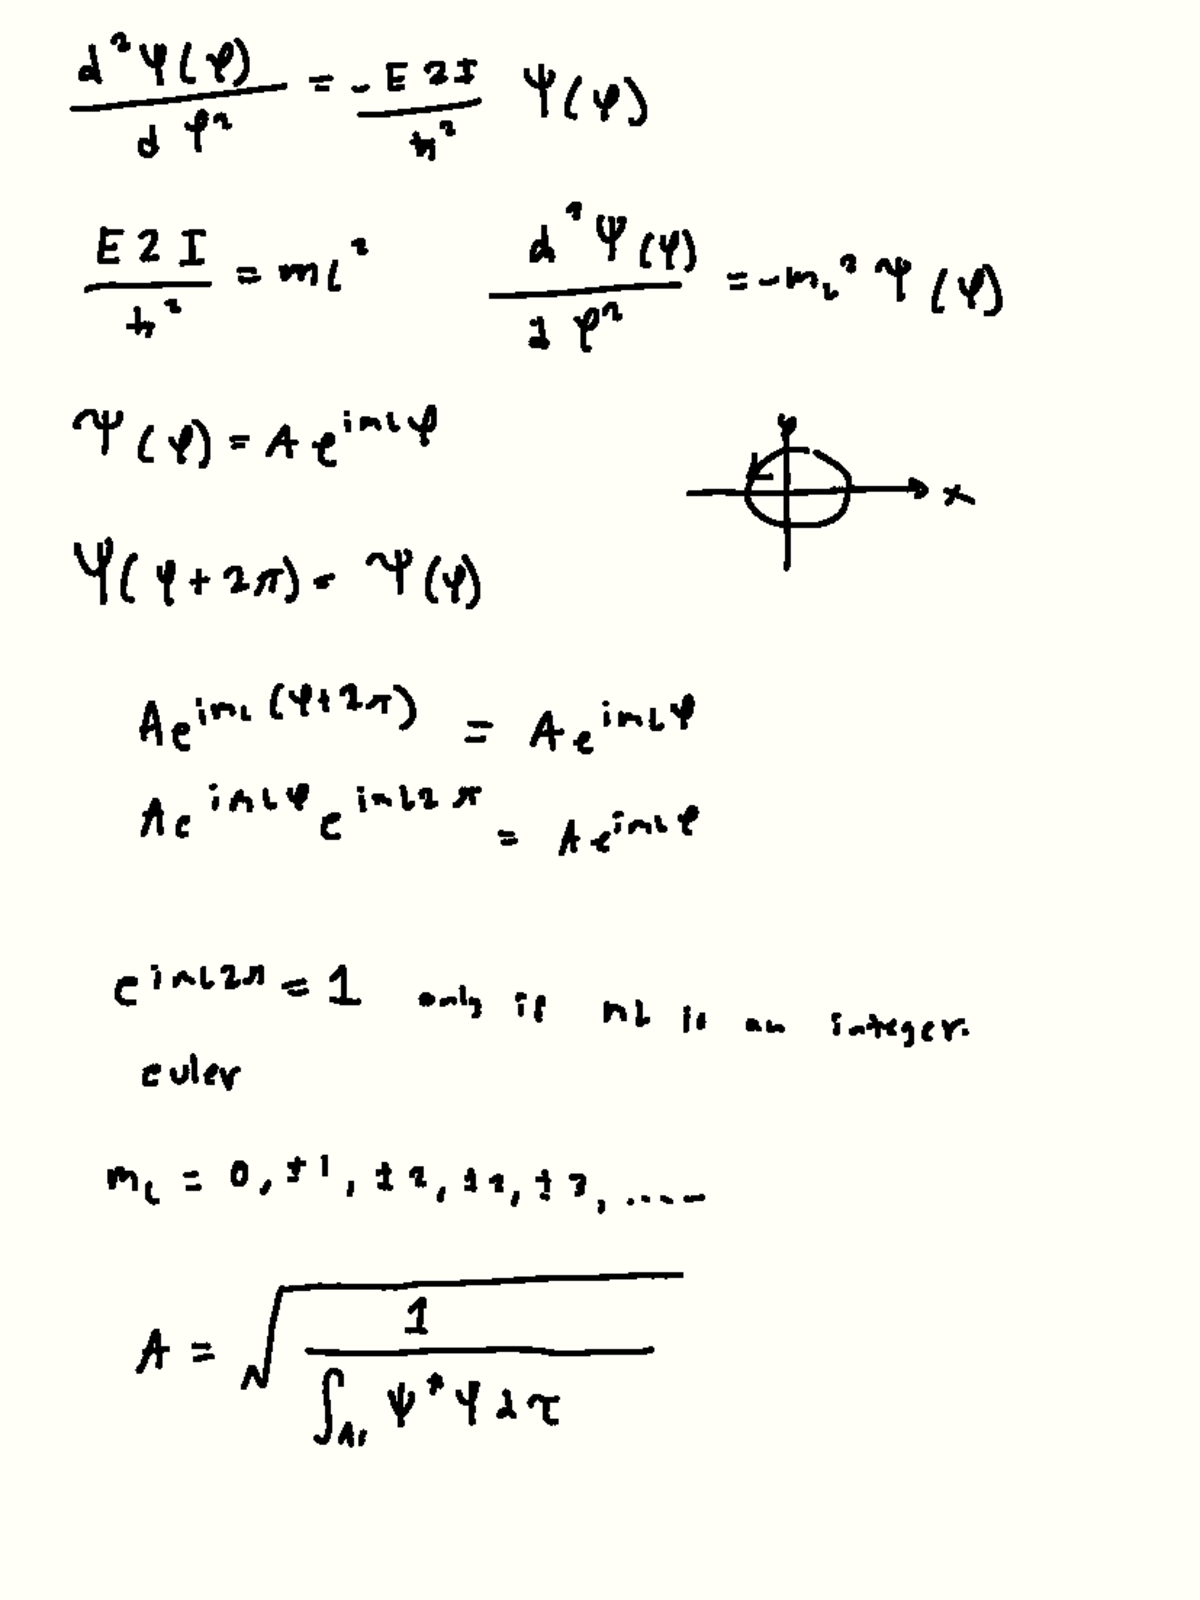 d²Ψ(φ)/dφ² = -E2I/ħ² Ψ(φ)
E2I/ħ² = mL² d²Ψ(φ)/dφ² = -mL²Ψ(φ)
Ψ(φ) = Ae^imLφ
y
x
Ψ(φ+2π) = Ψ(φ)
Ae^imL(φ+2π) = Ae^imLφ
Ae^imLφ e^imL2π = Ae^imLφ
e^imL2π = 1 only if mL is an integer.
euler
mL = 0, ±1, ±2, ±2, ±3, .....
A = √(1/∫AS Ψ*Ψdτ)